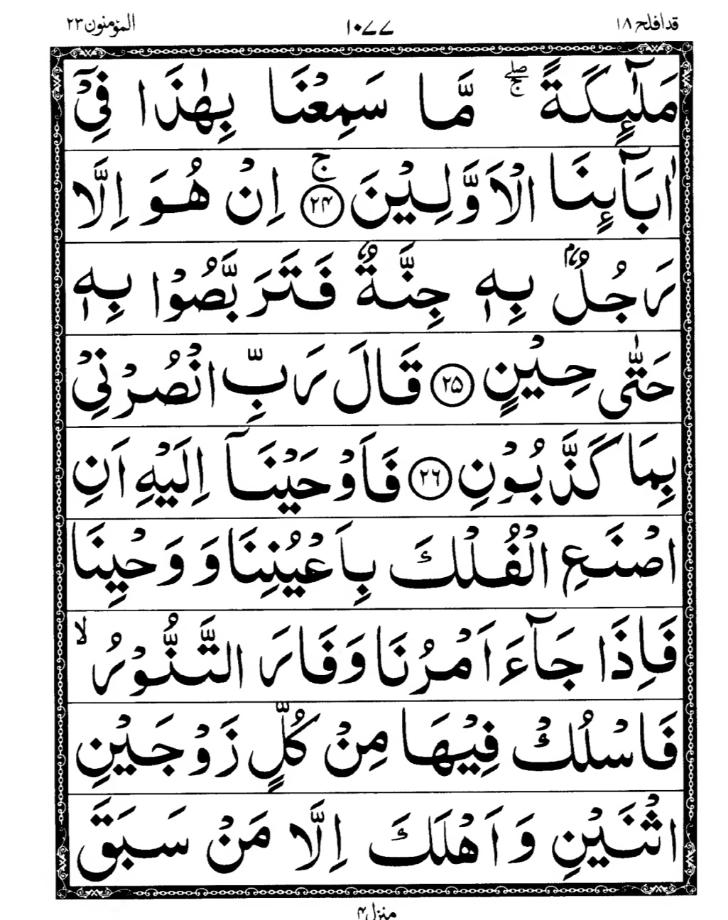 قد افلح ١٨ ١٠٧٧ المؤمنون ٢٣
مَلٰٓئِكَةً ۖۚ مَّا سَمِعْنَا بِهٰذَا فِيْۤ
اٰبَآئِنَا الْاَوَّلِيْنَ ۚ﴿۲۴﴾ اِنْ هُوَ اِلَّا
رَجُلٌۢ بِهٖ جِنَّةٌ فَتَرَبَّصُوْا بِهٖ
حَتّٰى حِيْنٍ ﴿۲۵﴾ قَالَ رَبِّ انْصُرْنِيْ
بِمَا كَذَّبُوْنِ ﴿۲۶﴾ فَاَوْحَيْنَاۤ اِلَيْهِ اَنِ
اصْنَعِ الْفُلْكَ بِاَعْيُنِنَا وَ وَحْيِنَا
فَاِذَا جَآءَ اَمْرُنَا وَفَارَ التَّنُّوْرُ ۙ
فَاسْلُكْ فِيْهَا مِنْ كُلٍّ زَوْجَيْنِ
اثْنَيْنِ وَاَهْلَكَ اِلَّا مَنْ سَبَقَ
منزل ۴